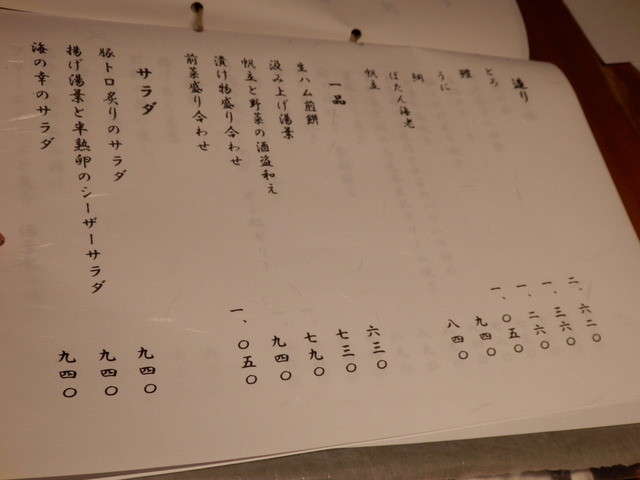 造り
とろ 二、六二〇
一、三六〇
うに 一、二六〇
鯛 一、〇五〇
ぼたん海老 九四〇
帆立 八四〇
一品
生ハム煎餅 六三〇
汲み上げ湯葉 七三〇
帆立と野菜の酒盗和え 七九〇
漬け物盛り合わせ 九四〇
前菜盛り合わせ 一、〇五〇
サラダ
豚トロ炙りのサラダ 九四〇
揚げ湯葉と半熟卵のシーザーサラダ 九四〇
海の幸のサラダ 九四〇